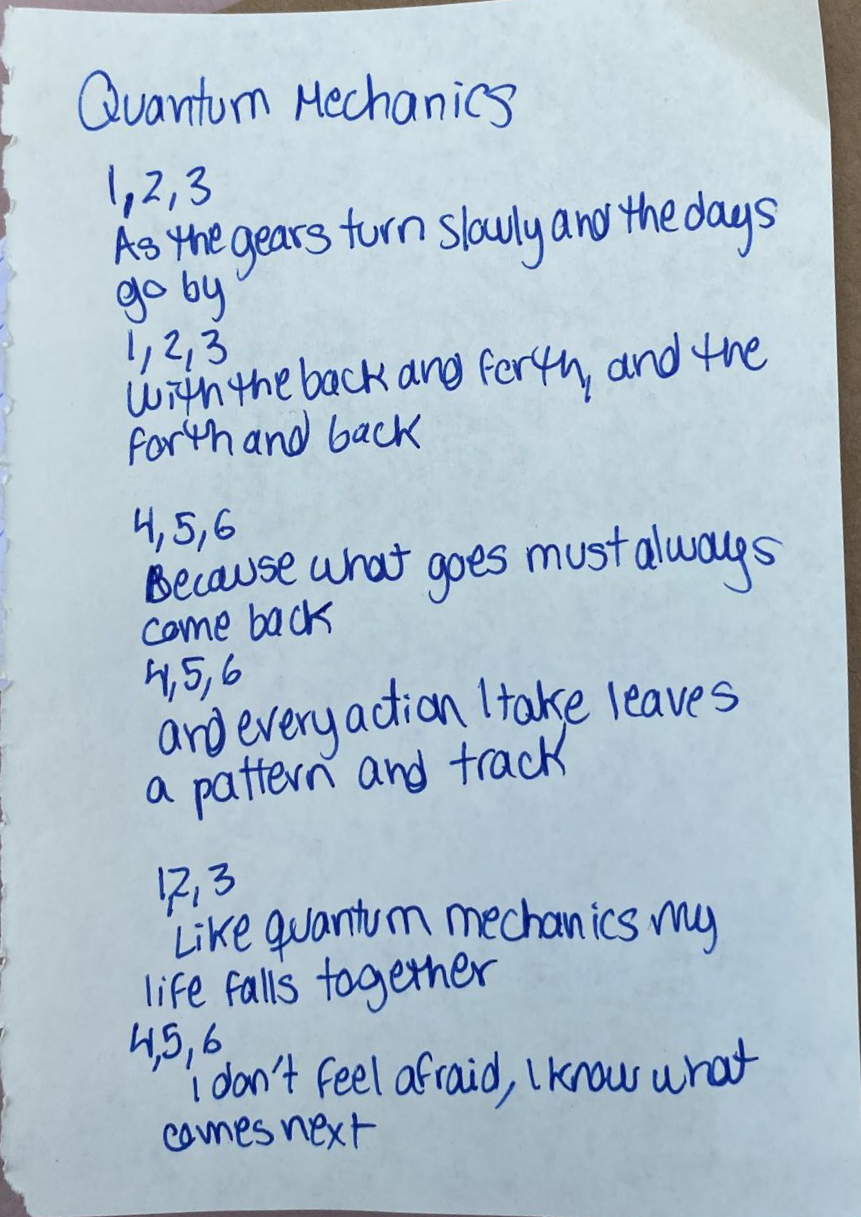 Quantum Mechanics
1, 2, 3
As the gears turn slowly and the days
go by
1, 2, 3
With the back and forth, and the
forth and back
4, 5, 6
Because what goes must always
come back
4, 5, 6
and every action I take leaves
a pattern and track
1, 2, 3
Like quantum mechanics my
life falls together
4, 5, 6
i don't feel afraid, I know what
comes next